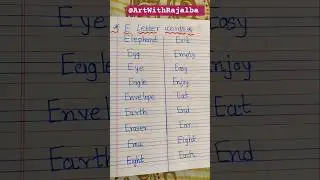 @ArtWithRajalba
* E Letter Words *
Elephant Eat
Egg Empty
Eye Easy
Eagle Enjoy
Envelope Eat
Earth End
Eraser Ear
Eight
Eight Each
Eye
Eagle
Envelope
Earth
Easy
Enjoy
Eat
End